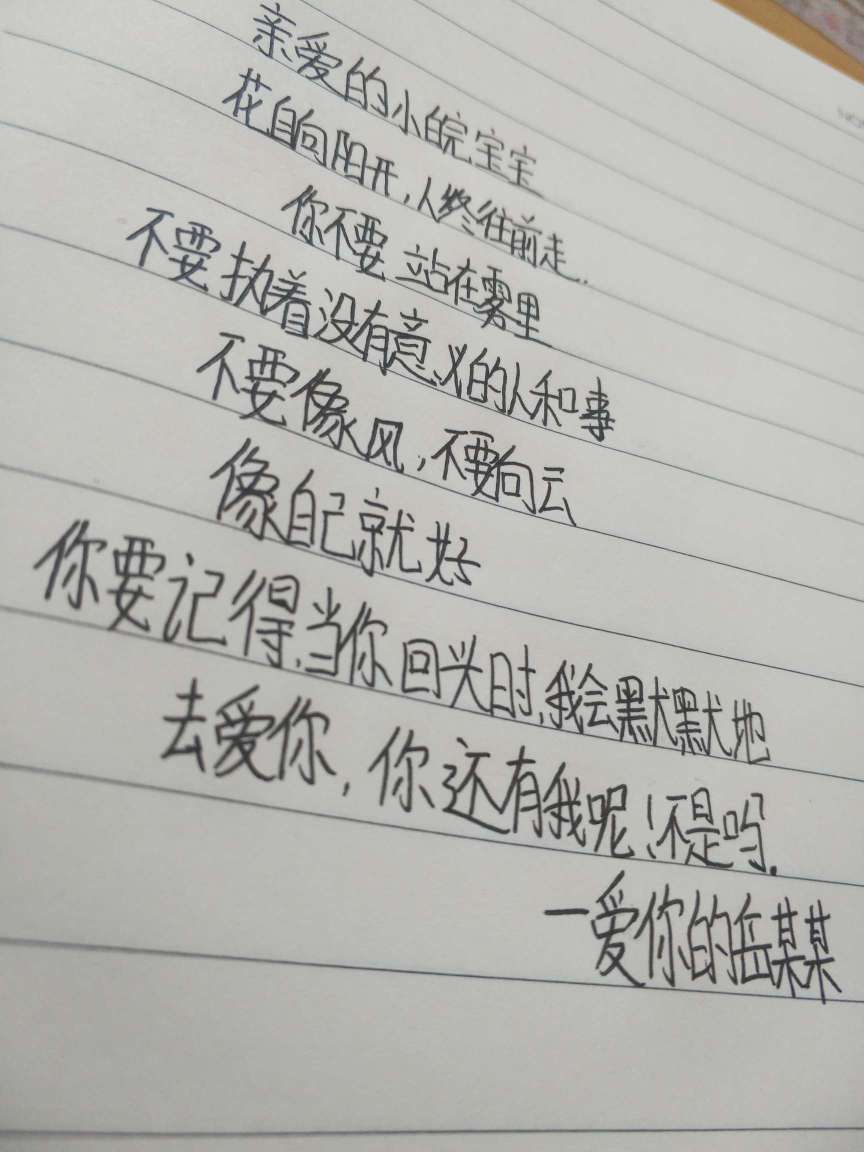 亲爱的小皖宝宝
花自向阳开,人终往前走..
你不要站在雾里
不要执着没有意义的人和事
不要像风,不要向云
像自己就好
你要记得,当你回头时,我会默默地
去爱你,你还有我呢!不是吗.
一爱你的岳某某